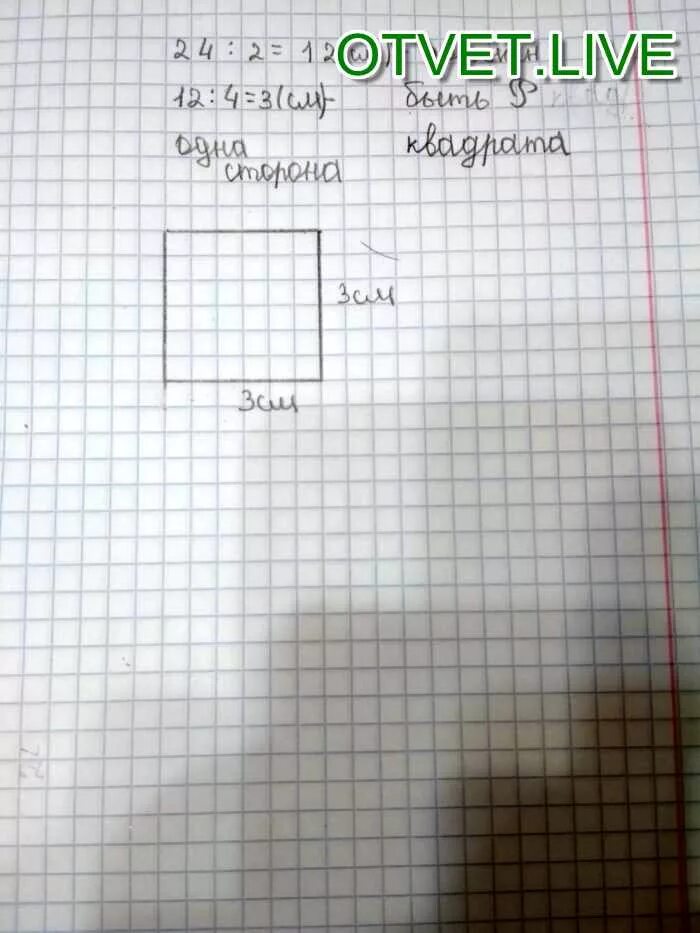 24 : 2 = 12
OTVET.LIVE
12 : 4 = 3 (см) - быть P
одна квадрата
сторона
3см
3см